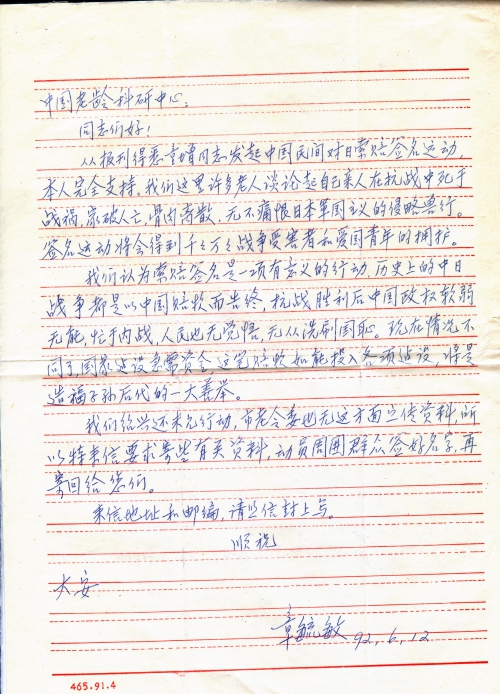 中国老龄科研中心:
同志们好!
从报刊得悉童增同志发起中国民间对日索赔签名运动,
本人完全支持,我们这里许多老人谈论起自己亲人在抗战中死于
战祸,家破人亡,骨肉离散,无不痛恨日本军国主义的侵略兽行。
签名运动将会得到千千万万战争受害者和爱国青年的拥护。
我们认为索赔签名是一项有意义的行动,历史上的中日
战争都是以中国赔款而告终,抗战胜利后中国政权软弱
无能,忙于内战,人民也无觉悟,无从洗刷国耻。现在情况不
同了国家建设急需资金,这笔赔款如能投入各项建设,将是
造福子孙后代的一大義举。
我们绍兴还未见行动,市老令委也无这方面宣传资料,所
以特来信要求寄些有关资料,动员周围群众签好名字,再
寄回给您们。
来信地址和邮编,请照信封上写。
顺祝
大安
章毓敏 92.6.12
465.91.4